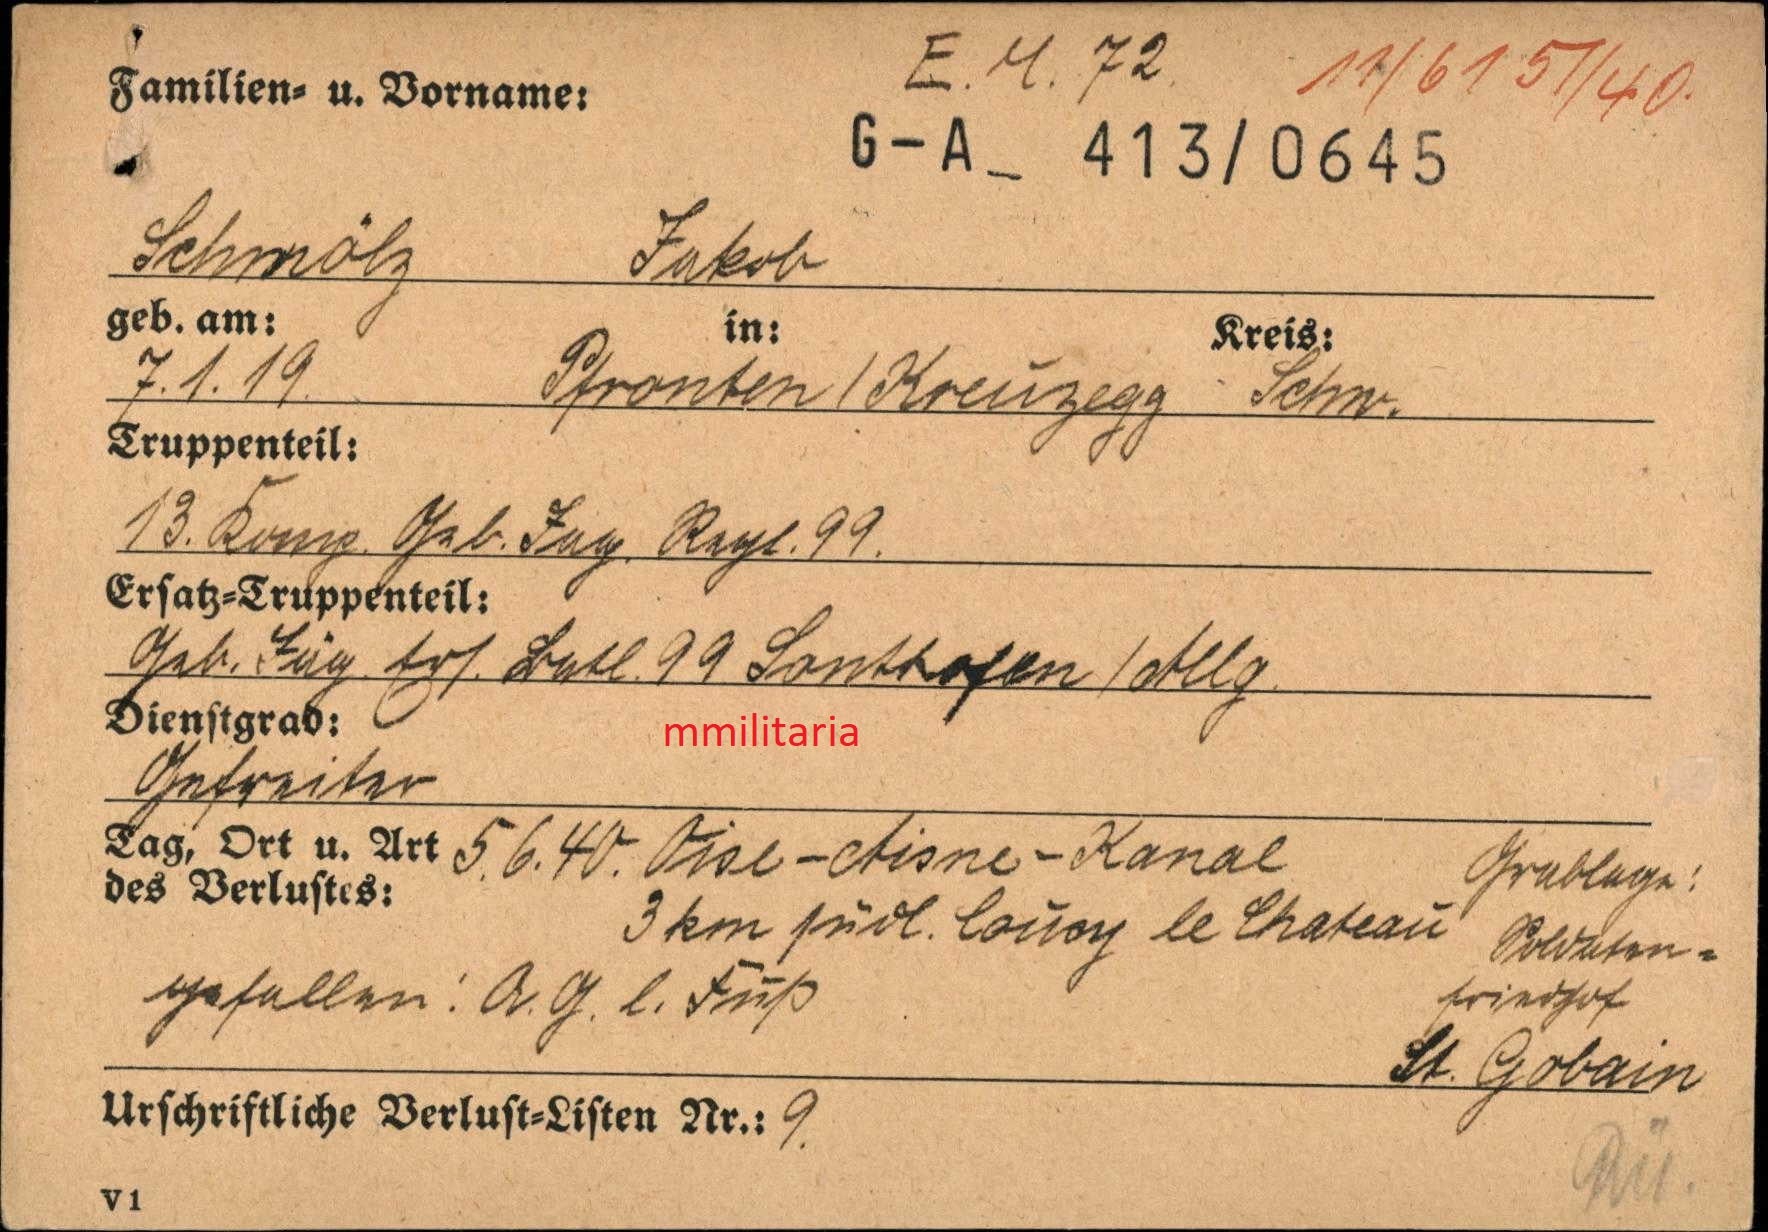 E. M. 72. 11/6151/40.
Familien- u. Vorname:
G-A_ 413/0645
Schmölz Jakob
geb. am: in: Kreis:
7.1.19. Pfronten / Kreuzegg Schw.
Truppenteil:
13. Komp. Geb. Jäg. Regt. 99.
Ersatz-Truppenteil:
Geb. Jäg. Ers. Batl. 99 Sonthofen / Allg.
Dienstgrad:
mmilitaria
Gefreiter
Tag, Ort u. Art 5.6.40. Oise-Aisne-Kanal Grablage:
des Verlustes:
3 km südl. Coucy le Chateau Soldaten-
gefallen: A. G. l. Fuß friedhof
St. Gobain
Urschriftliche Verlust-Listen Nr.: 9.
V 1